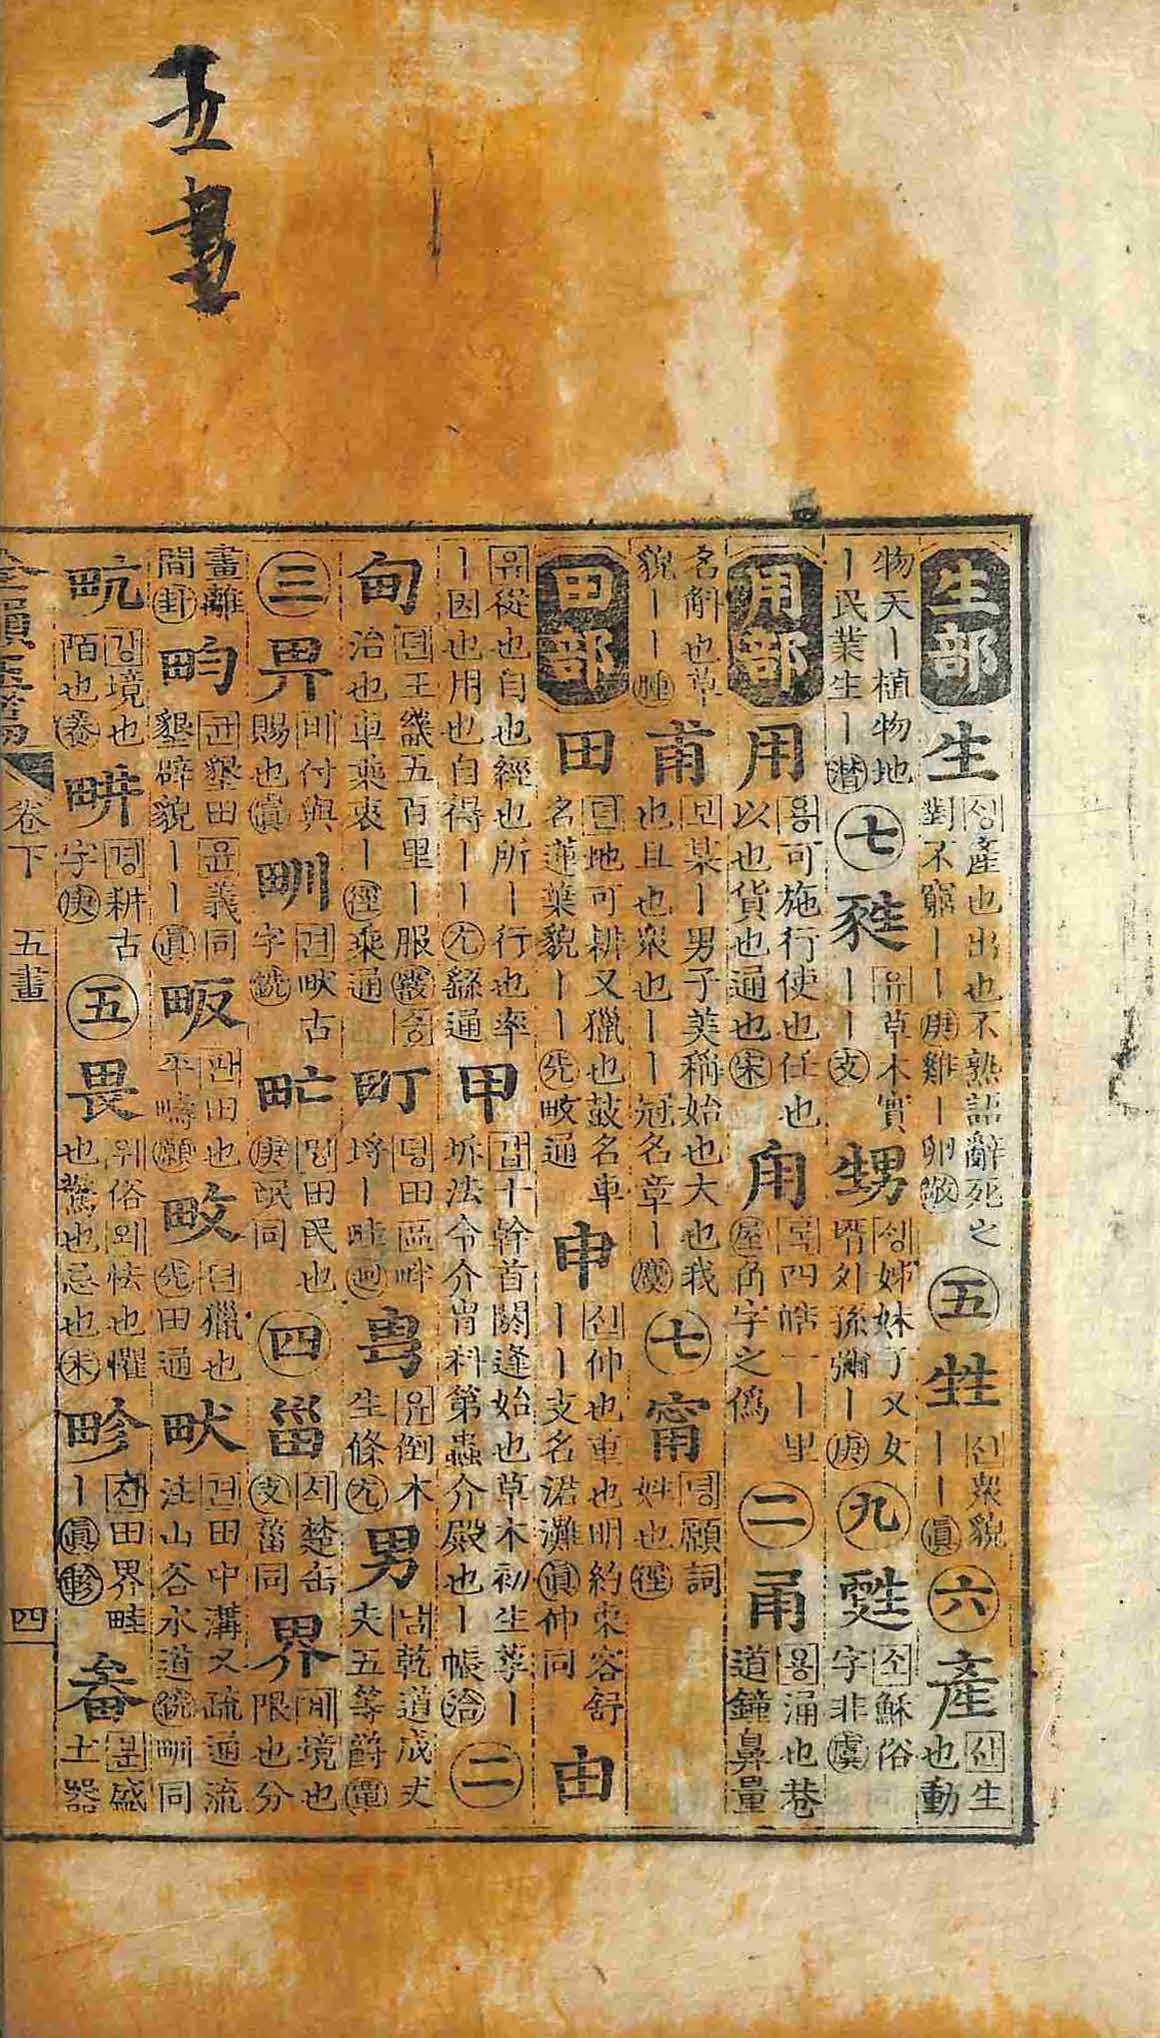 五畫
生部 生 싱產也出也不熟詔辭死之對不窮丨丨庚雞丨卵敬 五 甡 신衆貌丨丨眞 六 產 산生也動
物天丨植物地丨民業生丨潸 七 甤 유草木實丨丨支 甥 싱姊妹子又女壻外孫彌丨庚 九 甦 소穌俗字非虞
用部 用 용可施行使也任也以也貨也通也宋 甪 록四皓一丨里屋角字之僞 二 甬 용涌也巷道鐘鼻量
名斛也草貌丨丨腫 甫 보某丨男子美稱始也大也我也且也衆也丨丨冠名章丨麌 七 甯 녕願詞姓也徑
田部 田 뎐地可耕又獵也鼓名車名蓮葉貌丨丨先畋通 申 신伸也重也明約束容舒丨丨支名涒灘眞伸同 由
유從也自也經也所丨行也率丨因也用也自得丨丨尤繇通 甲 갑十幹首閼逢始也草木初生莩丨坼法令介冑科第蟲介殿也丨帳洽 二
甸 뎐王畿五百里丨服霰승治也車乘衷丨徑乘通 町 뎡田區畔埒丨畦迥 甹 유倒木生條尤 男 남乾道成丈夫五等爵覃
三 畀 비付與賜也寘 甽 견畎古字銑 甿 밍田民也庚氓同 四 甾 츼楚缶支菑同 界 계境也限也分
畫離間卦 畇 균墾田윤義同墾辟貌丨丨眞 畈 판田也平疇願 畋 뎐獵也先田通 畎 견田中溝又疏通流注山谷水道銑甽同
㽘 강境也陌也養 畊 경耕古字庚 五 畏 위俗외怯也懼也驚也忌也未 畛 진田界畦丨眞軫 畚 분盛土器
全韻玉篇 卷下 五畫 四